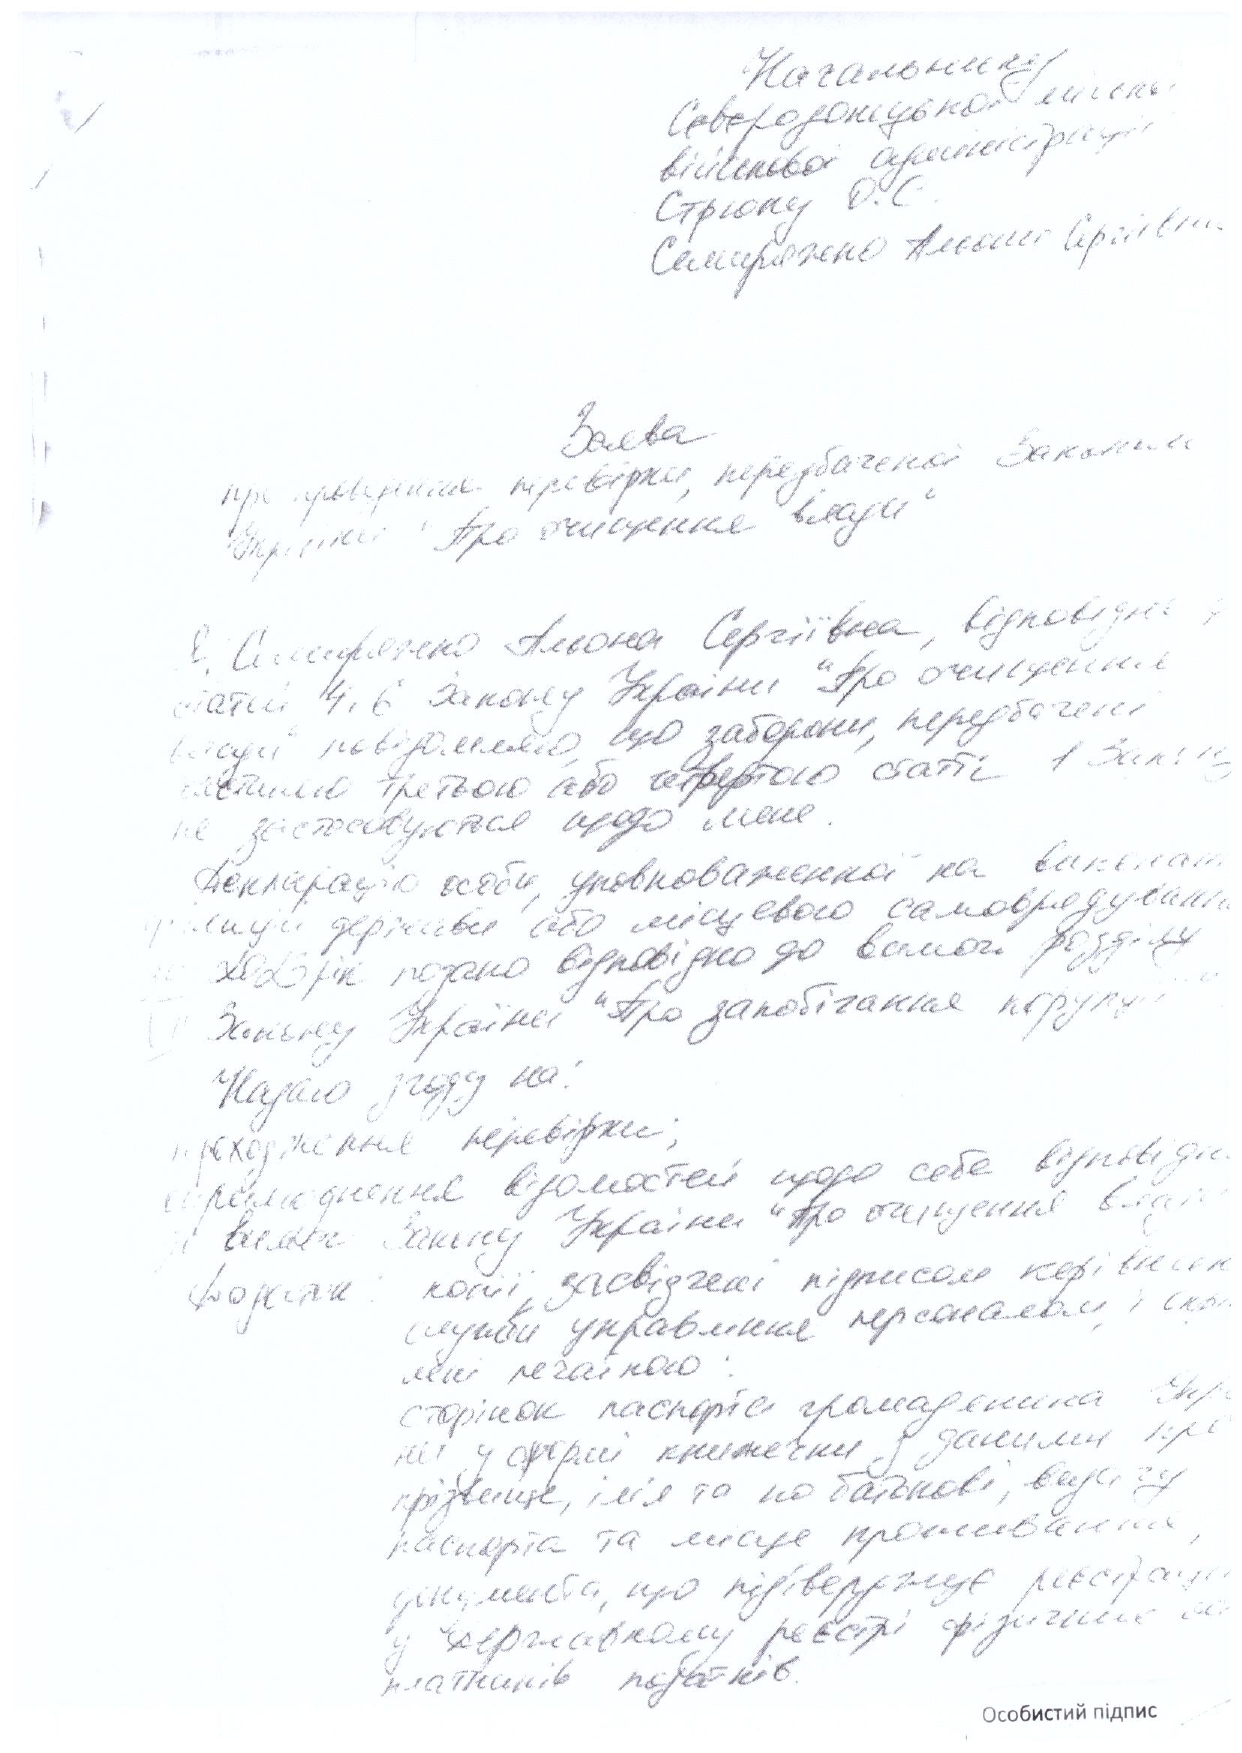 Начальнику
Сєвєродонецької міської
військової адміністрації
Стрюку О.С.
Семиряжко Альони Сергіївни
Заява
про проведення перевірки, передбаченої Законом
України "Про очищення влади"
Я, Семиряжко Альона Сергіївна, відповідно до
статей 4, 6 Закону України "Про очищення
влади" повідомляю, що заборони, передбачені
частиною третьою або четвертою статті 1 Закону
не застосовуються щодо мене.
Декларацію особи, уповноваженої на виконан
функцій держави або місцевого самоврядування
за рік подано відповідно до вимог розділу
VII Закону України "Про запобігання корупції"
Надаю згоду на:
проходження перевірки;
оприлюднення відомостей щодо себе відповідно
до вимог Закону України "Про очищення влади"
Додатки: копії, засвідчені підписом керівника
служби управління персоналом, і скріп
лені печаткою:
сторінок паспорта громадянина Украї
ни у формі книжечки з даними про
прізвище, ім'я та по батькові, видачу
паспорта та місце проживання,
документа, що підтверджує реєстрацію
у Державному реєстрі фізичних осіб
платників податків.
Особистий підпис